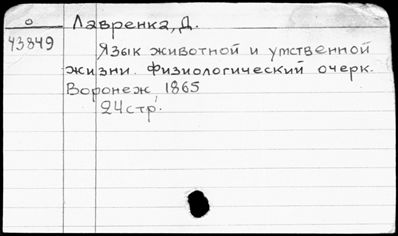 о Лавренка, Д.
43849 Язык животной и умственной
жизни. Физиологический очерк.
Воронеж, 1865
24 стр.